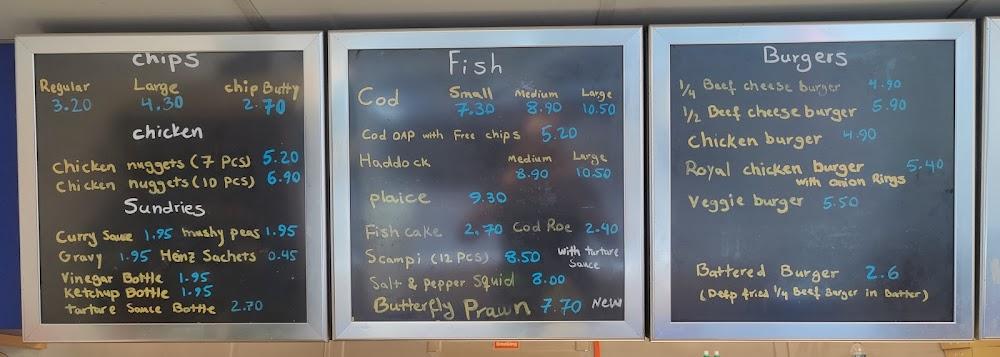 chips
Regular Large chip Butty
3.20 4.30 2.70
chicken
Chicken nuggets (7 PCS) 5.20
Chicken nuggets (10 PCS) 6.90
Sundries
Curry Sauce 1.95 mushy peas 1.95
Gravy 1.95 Heinz Sachets 0.45
Vinegar Bottle 1.95
Ketchup Bottle 1.95
tarture Sauce Bottle 2.70
Fish
Cod Small Medium Large
7.30 8.90 10.50
Cod OAP with Free chips 5.20
Haddock Medium Large
8.90 10.50
plaice 9.30
Fish cake 2.70 Cod Roe 2.40
Scampi (12 PCS) 8.50 with tarture
Sauce
Salt & Pepper Squid 8.00
Butterfly Prawn 7.70 New
Burgers
1/4 Beef cheese burger 4.90
1/2 Beef cheese burger 5.90
Chicken burger 4.90
Royal chicken burger 5.40
with onion Rings
Veggie burger 5.50
Battered Burger 2.6
(Deep fried 1/4 Beef Burger in Batter)